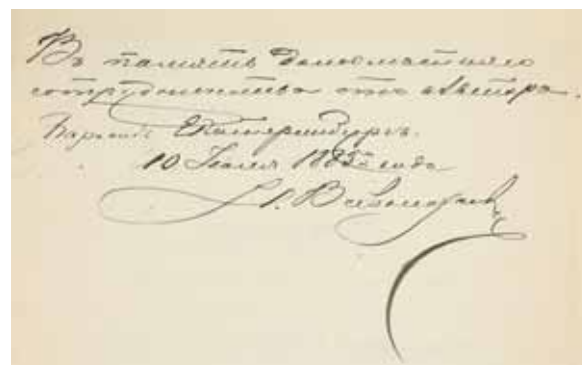 Въ память долголѣтняго
сотрудничества отъ Автора.
Пароходъ Екатеринбургъ.
10 Іюля 1885 года